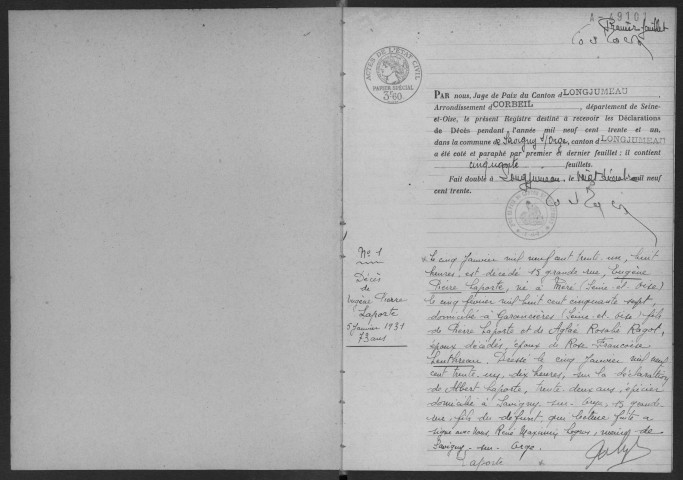 A-49101
Premier feuillet
ACTES DE L'ETAT CIVIL
PAPIER SPÉCIAL
3f60
PAR nous, Juge de Paix du Canton d LONGJUMEAU,
Arrondissement d CORBEIL, département de Seine-
et-Oise, le présent Registre destiné à recevoir les Déclarations
de Décès pendant l'année mil neuf cent trente et un,
dans la commune de Savigny s/Orge, canton d LONGJUMEAU
a été coté et paraphé par premier et dernier feuillet; il contient
cinquante feuillets.
Fait double à Longjumeau, le vingt décembre mil neuf
cent trente.
N° 1
Décès
de
Eugène Pierre
Laporte
5 Janvier 1931
73 ans
Le cinq Janvier mil neuf cent trente un, huit
heures, est décédé 15 grande rue, Eugène
Pierre Laporte, né à Méré (Seine-et-Oise)
le cinq février mil huit cent cinquante sept,
domicilié à Garancières (Seine-et-Oise) fils
de Pierre Laporte et de Aglaé Rosalie Ragot,
époux décédés, époux de Rose Françoise
Dressé le cinq Janvier mil neuf
cent trente un, dix heures, sur la déclaration
de Albert Laporte, trente-deux ans, épicier
domicilié à Savigny-sur-Orge, 15 grande
rue, fils du défunt, qui lecture faite a
signé avec Nous, René Maximin Legros, maire de
Savigny-sur-Orge.
Laporte